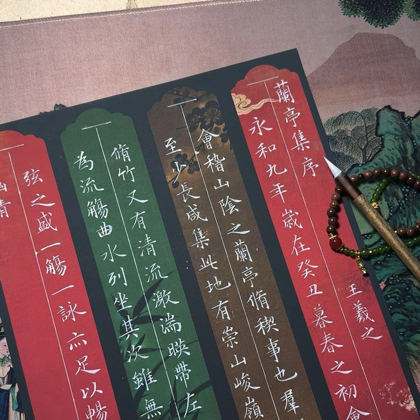 蘭亭集序 王羲之
永和九年歲在癸丑暮春之初會
會稽山陰之蘭亭脩禊事也羣
至少長咸集此地有崇山峻嶺
脩竹又有清流激湍映帶左
為流觴曲水列坐其次雖無
弦之盛一觴一詠亦足以暢
幽情